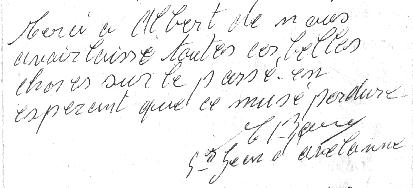 Merci a Albert de nous
avoir laissé toutes ces belles
choses sur le passé. en
esperant que ce musé perdure.
St Jean d'avelanne